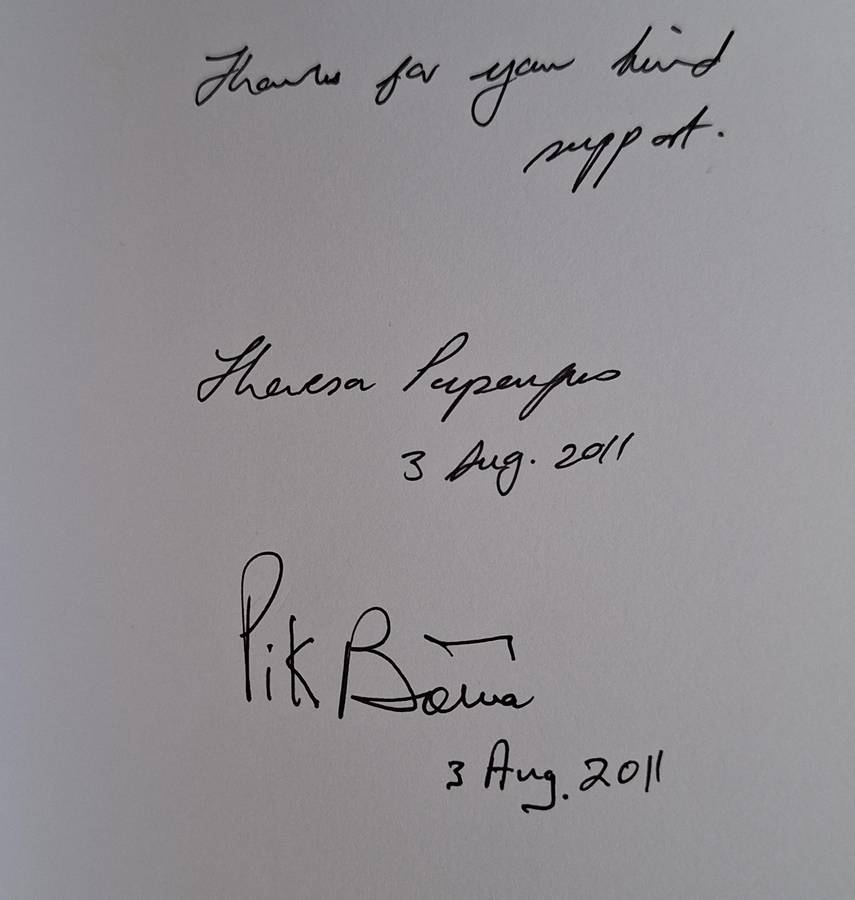 Thanks for your kind
support.
Theresa Papenfus
3 Aug. 2011
Pik Botha
3 Aug. 2011